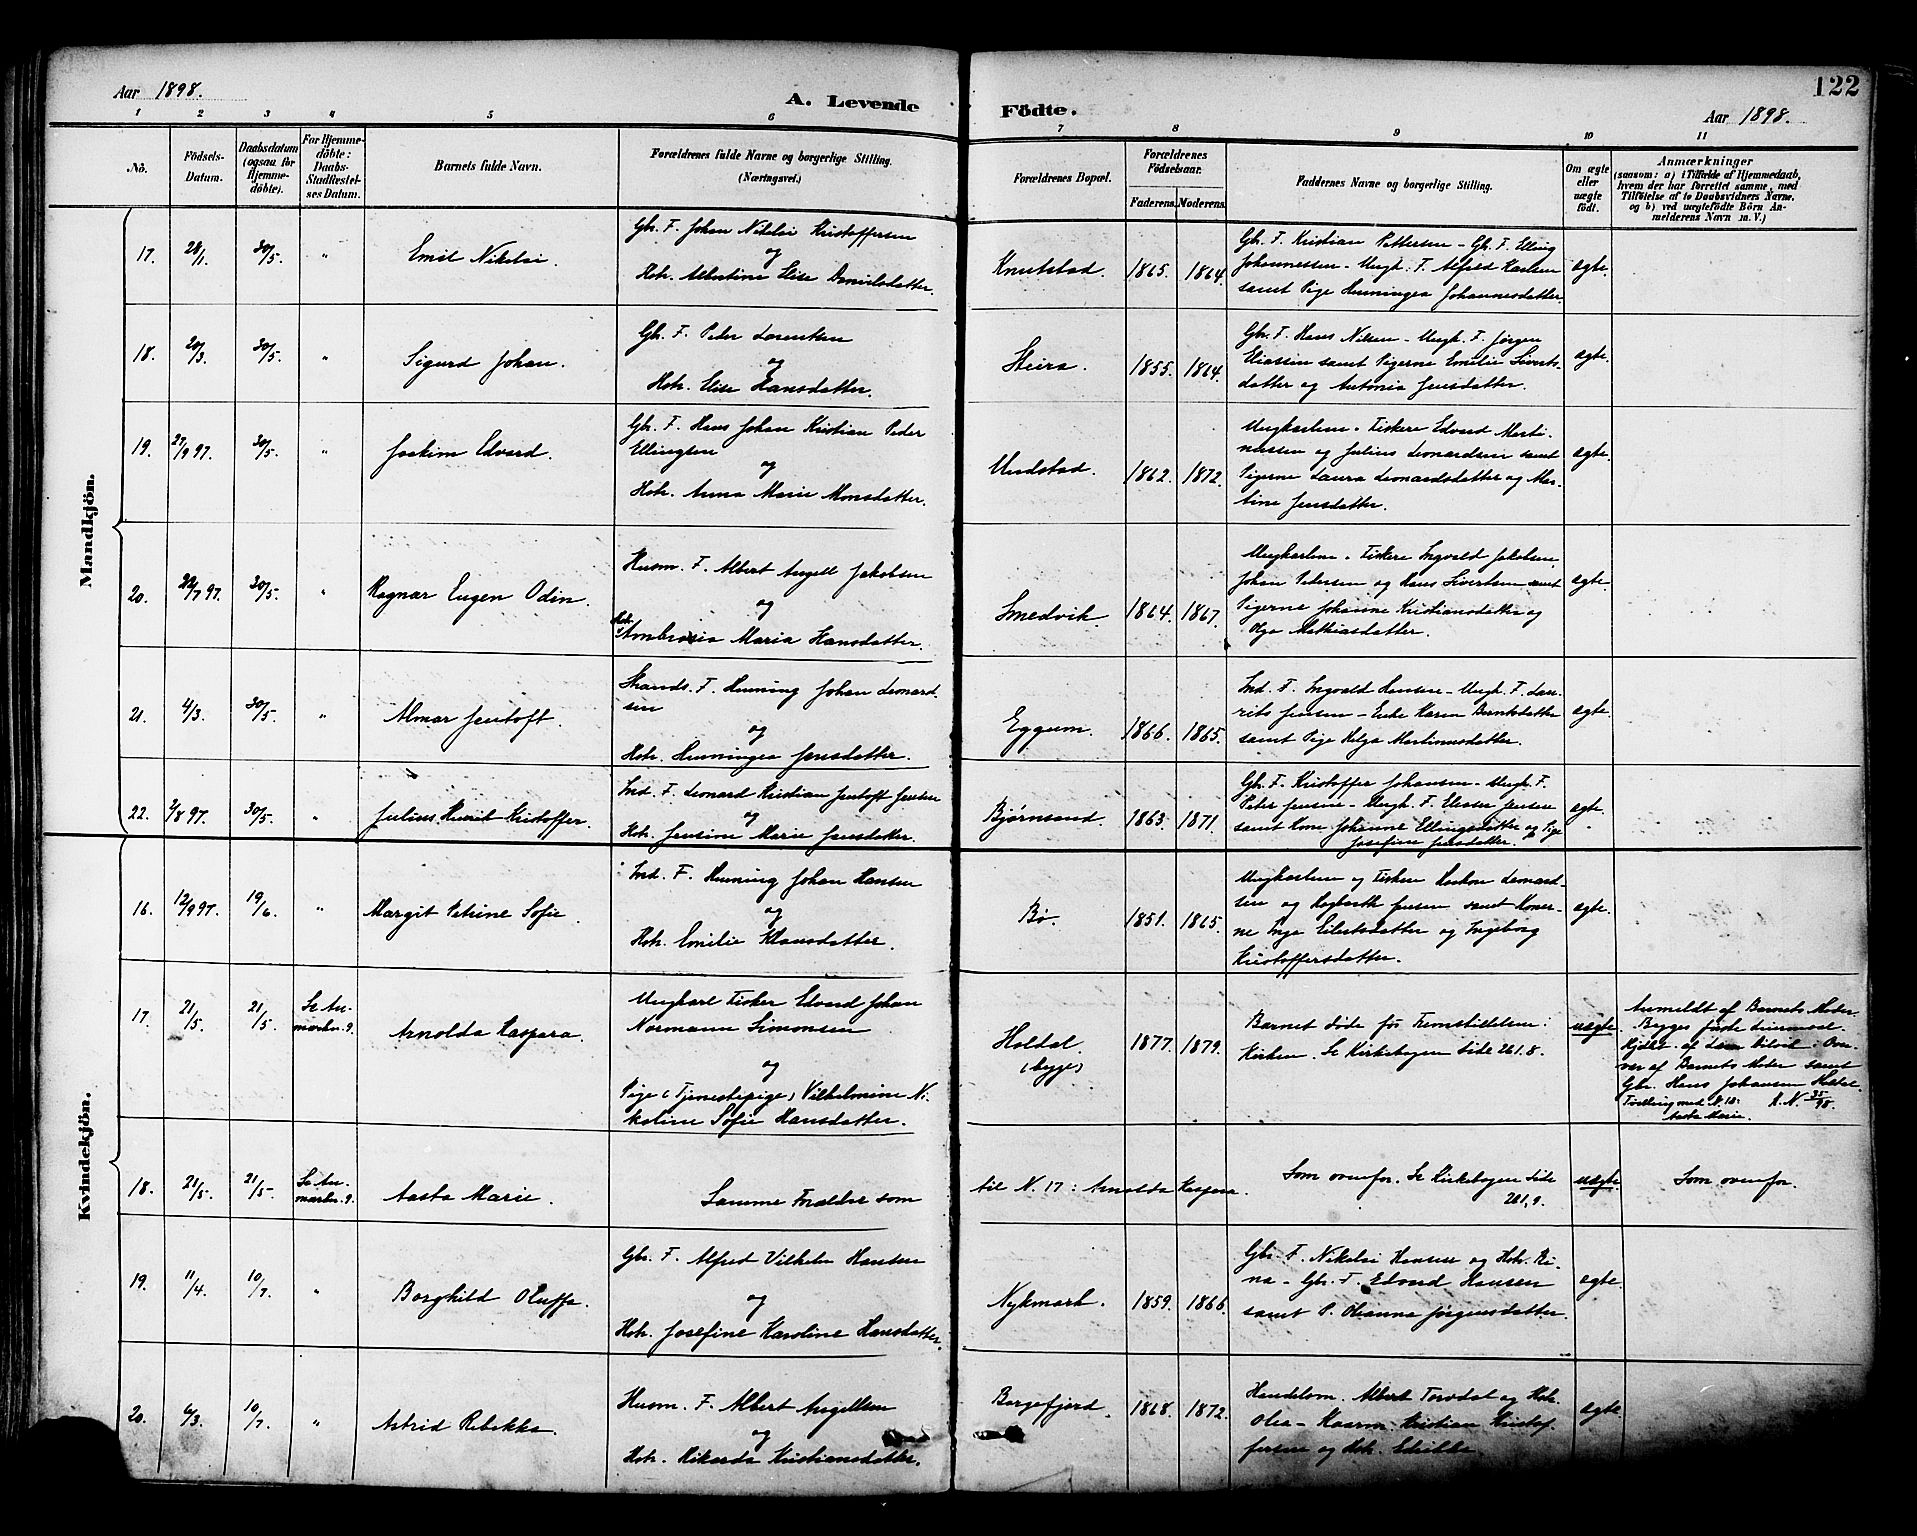 122
Aar 1898.
A. Levende Födte.
Aar 1898.
1 2 3 4 5 6 7 8 9 10 11
No.
Födsels-Datum.
Daabsdatum (ogsaa for Hjemme-döbte).
For Hjemme-döbte: Daabs-Stadfæstel-ses Datum.
Barnets fulde Navn.
Forældrenes fulde Navne og borgerlige Stilling.
(Næringsvei.)
Forældrenes Bopæl.
Forældrenes Födselsaar.
Faderens. Moderens.
Faddernes Navne og borgerlige Stilling.
Om ægte eller uægte født.
Anmærkninger
(saasom: a) i Tilfælde af Hjemmedaab, hvem der har forrettet samme, med Tilföielse af to Daabsvidners Navne, og b) ved uægtefödte Börn An-melderens Navn m. V.)
Mandkjön.
17. 28/1. 30/5. " Emil Nikolai
Gbr. F. Johan Nikolai Kristoffersen
og
Hstr. Albertine Elise Danielsdatter.
Knutstad. 1865. 1864.
Gbr. F. Kristian Pettersen - Gbr. F. Elling
Johannessen - Ungk. F. Alfred Karlsen
samt Pige Henningea Johannesdatter.
ægte.
18. 20/3. 30/5. " Sigurd Johan.
Gbr. F. Peder Lorentsen
og
Hstr. Elise Hansdatter.
Steira. 1855. 1864.
Gbr. F. Hans Nilsen - Ungk. F. Jørgen
Eliassen samt Pigerne Emilie Siverts-
datter og Antonia Jensdatter.
ægte.
19. 27/9 97. 30/5. " Joakim Edvard.
Gbr. F. Hans Johan Kristian Peder
Ellingsen
og
Hstr. Anna Marie Monsdatter.
Undstad. 1862. 1872.
Ungkarlene - Fiskere Edvard Marti-
nussen og Julius Leonardsen samt
Pigerne Laura Leonardsdatter og Mar-
tine Jensdatter.
ægte.
20. 22/7 97. 30/5. " Ragnar Eugen Odin.
Husm. F. Albert Angell Jakobsen
og
Hstr. Ambrosia Maria Hansdatter.
Smedvik. 1864. 1867.
Ungkarlene - Fiskere Ingvald Jakobsen
Johan Pedersen og Hans Sivertsen samt
Pigerne Johanne Kristiansdatter og
Olga Mathiasdatter.
ægte.
21. 4/3. 30/5. " Almar Jentoft.
Strands. F. Henning Johan Leonard-
sen
og
Hstr. Henningea Jensdatter.
Eggum. 1866. 1865.
Ind. F. Ingvald Hansen - Ungk. F. Lau-
rits Jensen - Enke Karen Berntsdatter
samt Pige Helga Martinusdatter.
ægte.
22. 2/8 97. 30/5. " Julius Kristoffer.
Ind. F. Leonard Kristian Jentoft Jensen
og
Hstr. Jensine Marie Jensdatter.
Bjørnsand. 1863. 1871.
Gbr. F. Kristoffer Johansen - Ungk. F.
Peter Jensen - Ungk. F. Jensen
samt Kone Johanne Ellingsdatter og Pige
Josefine Jensdatter.
ægte.
Kvindekjön.
16. 12/9 97. 19/6. " Margit Petrine Sofie
Ind. F. Henning Johan Hansen
og
Hstr. Emilie Klausdatter.
Bø. 1851. 1865.
Ungkarlene og Fiskere Haakon Leonard-
sen og Hagbarth Jensen samt Koner-
ne Inga Eilertsdatter og Ingeborg
Kristoffersdatter.
ægte.
17. 21/5. 21/5. Se An-
mærkn. 9. Arnolda Kaspara.
Ungkarl Fisker Edvard Johan
Normann Simonsen
og
Pige (Tjenestepige) Vilhelmine Ni-
koline Sofie Hansdatter.
Holdal. (bygs) 1877. 1879.
Barnet døde før Fremstillelsen i
Kirken. Se Kirkebogen Side 261.8.
uægte.
Anmeldt af Barnets Moder.
af Barnets Moder samt
Gbr. Hans Johansen
Tvilling med N. 18:
Aasta Marie.
18. 21/5. 21/5. Se An-
mærkn. 9. Aasta Marie.
Samme Forældre som til N. 17: Arnolda Kaspara.
Som ovenfor. Se Kirkebogen Side
261,9.
uægte.
Som ovenfor.
19. 11/4. 10/7. " Borghild Oluffa.
Gbr. F. Alfred Vilhelm Hansen
og
Hstr. Josefine Karoline Hansdatter.
Nykmark. 1859. 1866.
Gbr. F. Nikolai Hansen og Hstr. Ri-
na - Gbr. F. Edvard Hansen
samt P. Oleanna Jørgensdatter.
ægte.
20. 6/3. 10/7. " Astrid Rebekka.
Husm. F. Albert Angellsen
og
Hstr. Rikarda Kristiansdatter.
Borgefjord. 1868. 1872.
Handelsm. Albert Torsdal og Hstr.
Olea - Kaarm. Kristian Kristof-
fersen og Hstr.
ægte.